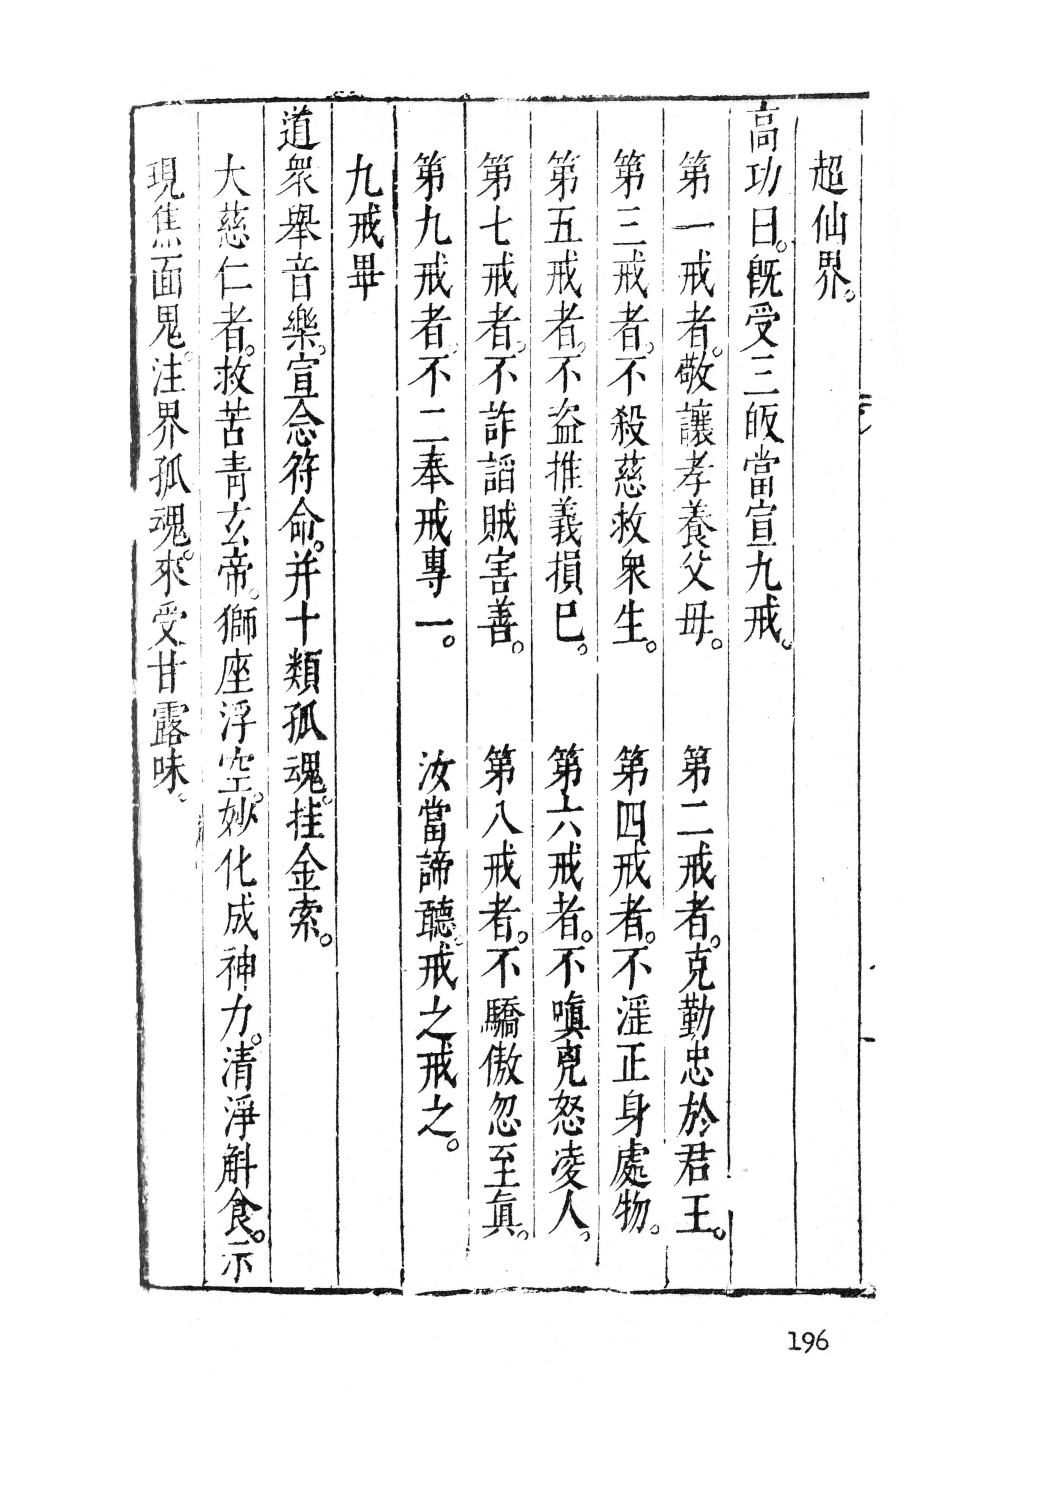 超仙界。
高功曰。既受三皈當宣九戒。
第一戒者。敬讓孝養父母。　第二戒者。克勤忠於君王。
第三戒者。不殺慈救衆生。　第四戒者。不淫正身處物。
第五戒者。不盜推義損已。　第六戒者。不嗔兇怒凌人。
第七戒者。不詐謟賊害善。　第八戒者。不驕傲忽至眞。
第九戒者。不二奉戒專一。　汝當諦聽。戒之戒之。
九戒畢
道衆舉音樂。宣念符命。并十類孤魂。挂金索。
大慈仁者。救苦青玄帝。獅座浮空。妙化成神力。清淨斛食。示
現焦面鬼。注界孤魂。來受甘露味。
196